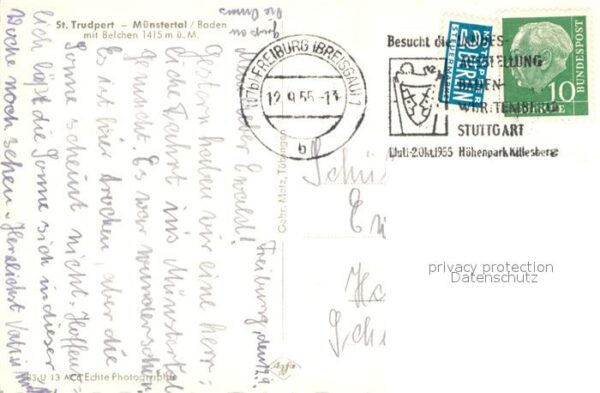 St. Trudpert – Münstertal / Baden
mit Belchen 1415 m ü. M.
(17b) FREIBURG (BREISGAU) 1
12.9.55-13
b
Besucht die LANDES-
AUSSTELLUNG
BADEN-
WÜRTTEMBERG
STUTTGART
1.Juli-2.Okt.1955 Höhenpark Killesberg
NOTOPFER
2 BERLIN
STEUERMARKE
DEUTSCHE BUNDESPOST
10
Freiburg, den 12.9.
Mein lieber Ewald!
Gestern haben wir eine herr-
liche Fahrt ins Münstertal
gemacht. Es war wunderschön
Es ist hier trocken, aber die
Sonne scheint nicht. Hoffent-
lich läßt die Sonne sich in dieser
Woche noch sehen. Herzlichst
Gruß an
die Omma
Gebr. Metz, Tübingen
Agfa
U 13 Echte Photographie
privacy protection
Datenschutz